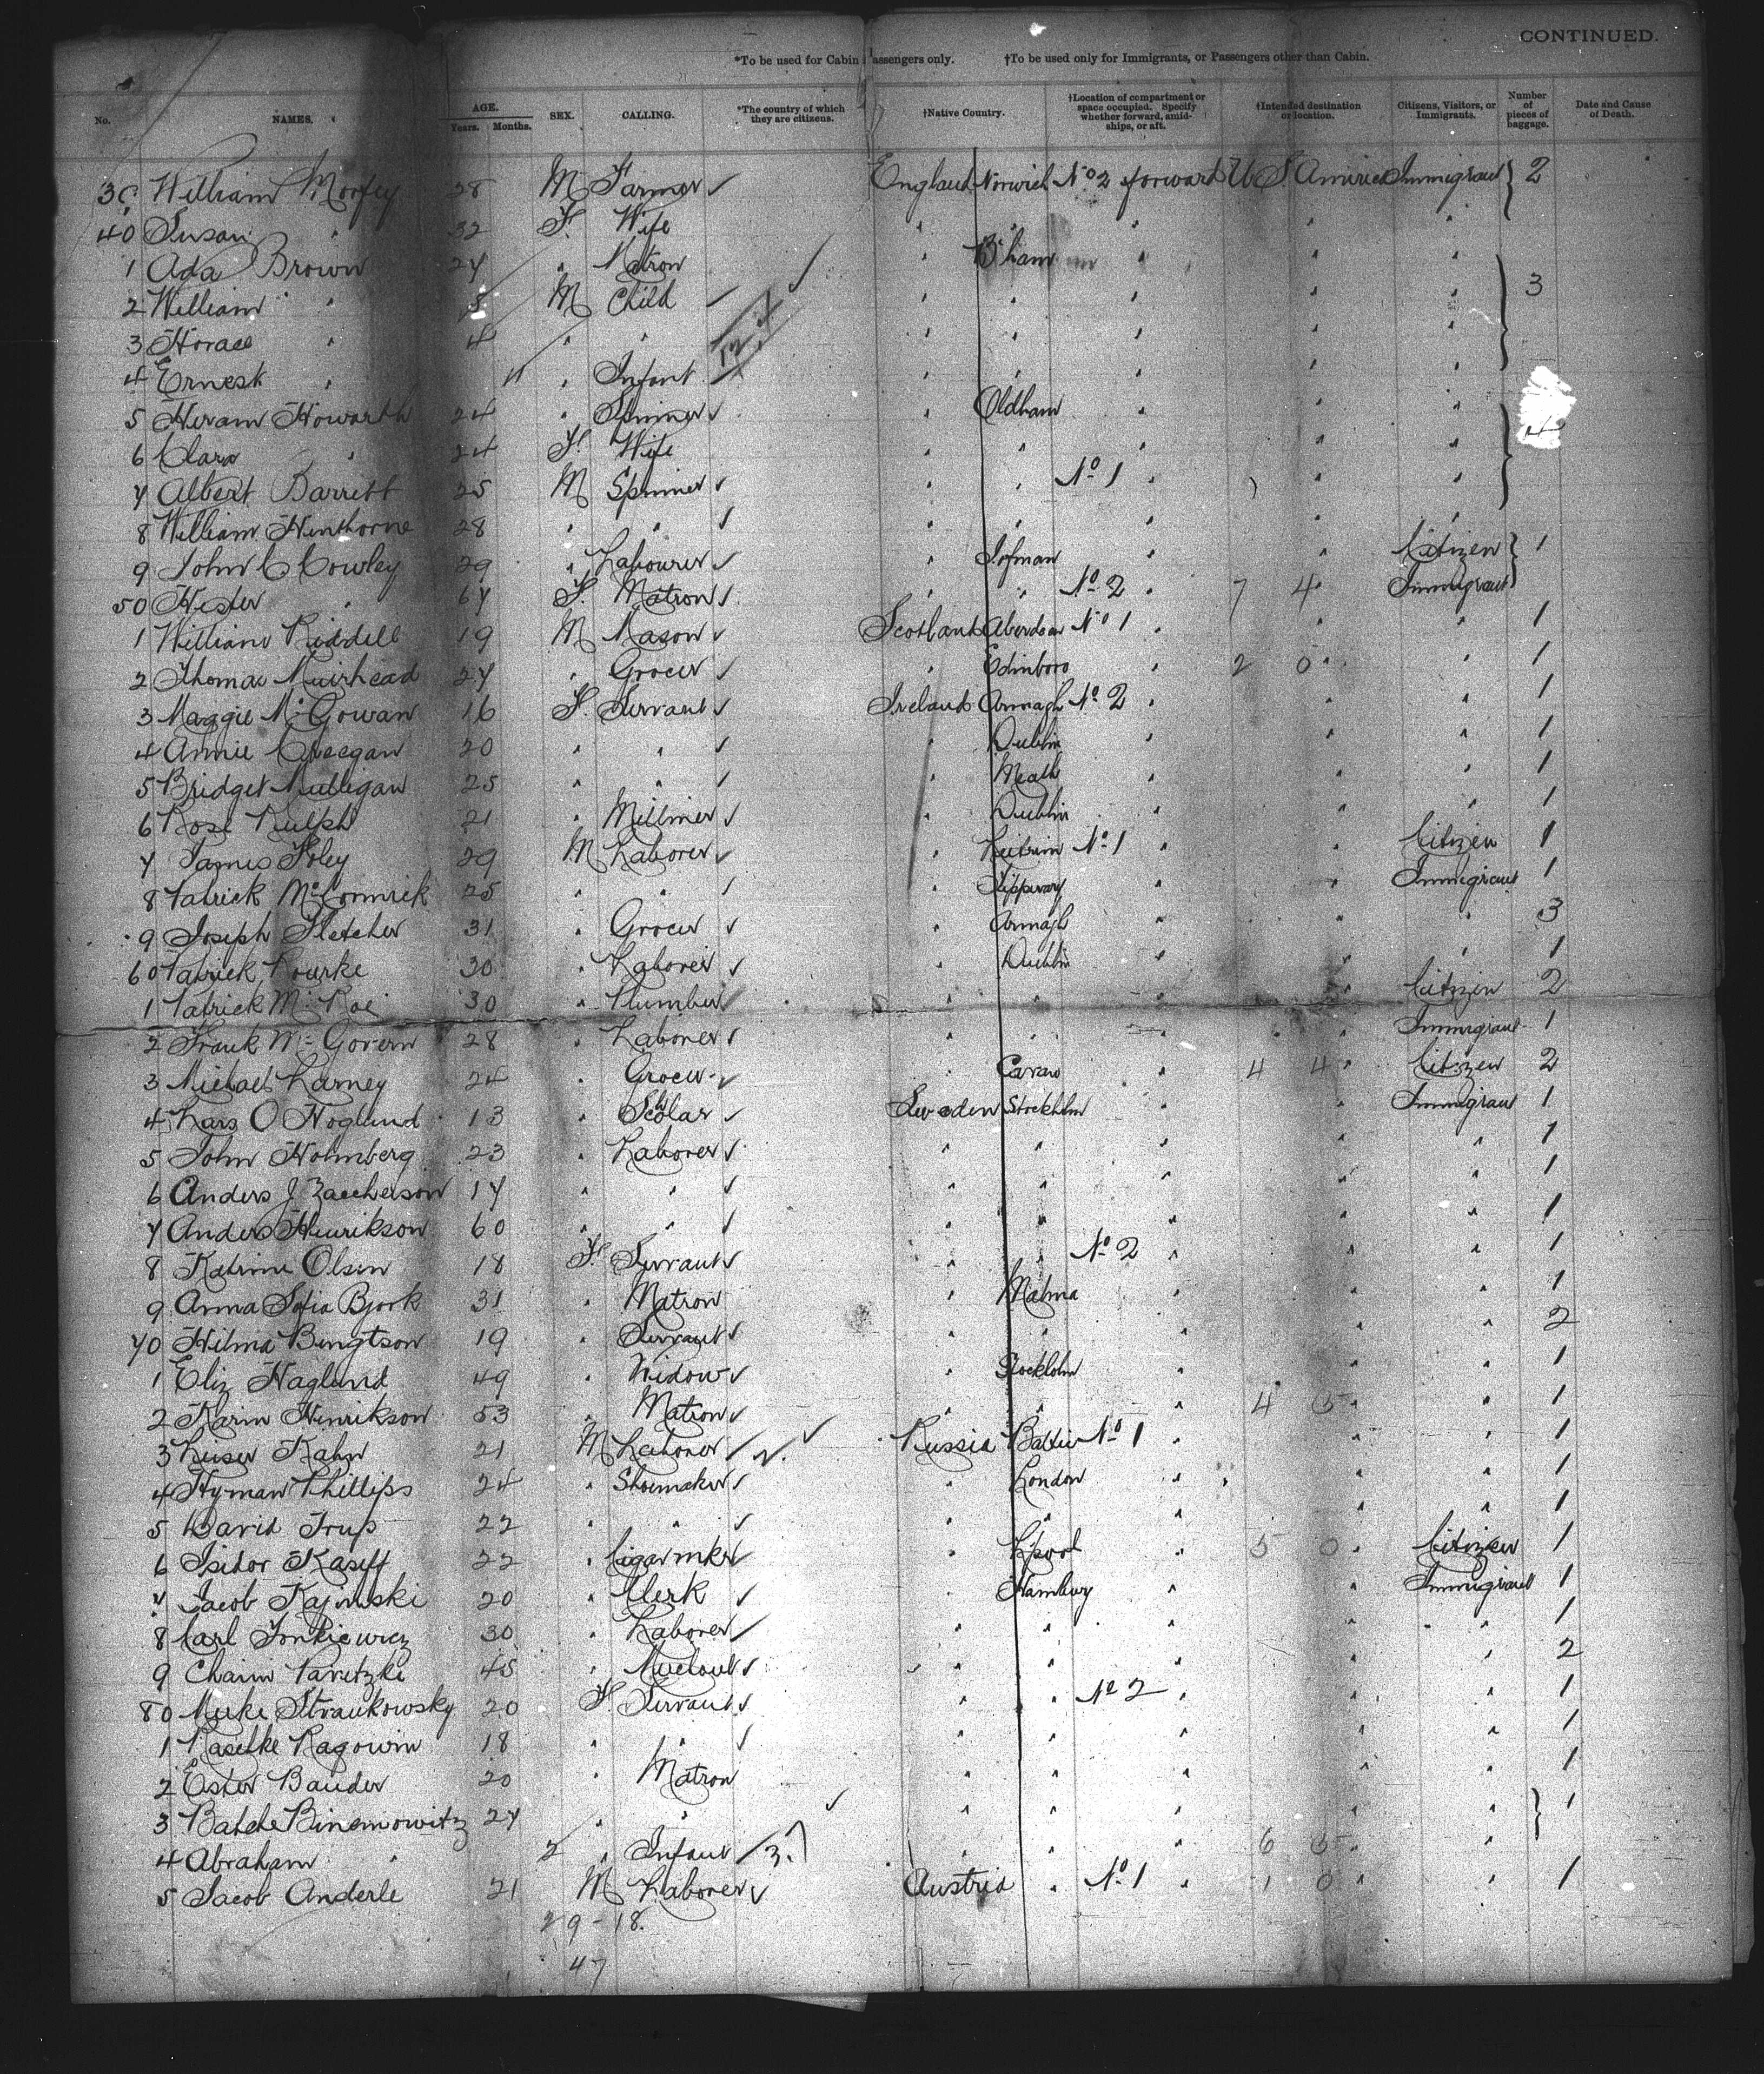 CONTINUED.
*To be used for Cabin Passengers only. †To be used only for Immigrants, or Passengers other than Cabin.
No. NAMES. AGE. Years. Months. SEX. CALLING. *The country of which they are citizens. †Native Country. †Location of compartment or space occupied. Specify whether forward, amidships, or aft. †Intended destination or location. Citizens, Visitors, or Immigrants. Number of pieces of baggage. Date and Cause of Death.
William 28 M Farmer England Norwich No 2 forward U S America Immigrant 2
40 Susan " 32 F. Wife " " " " "
1 Ada Brown 27 " Matron " B'ham " " "
2 William " 5 M Child " " " " " 3
3 Horace " 4 " " " " " " "
4 Ernest " 11 " Infant " " " " "
5 Hiram Howarth 24 " Spinner " Oldham " " "
6 Clara " 24 F. Wife " " " " " 4
7 Albert Barrett 25 M Spinner " " No 1 " " "
8 William Hinthorne 28 " " " " " " "
9 John C Cowley 29 " Labourer " Iofman " " Citizen 1
50 Hester " 67 F. Matron " " No 2 " 7 4 " Immigrant
1 William Riddell 19 M Mason Scotland Aberdeen No 1 " " " 1
2 Thomas Muirhead 27 " Grocer " Edinboro " 2 0 " " 1
3 Maggie McGowan 16 F. Servant Ireland Armagh No 2 " " " 1
4 Annie Creegan 20 " " " Dublin " " " 1
5 Bridget Mulligan 25 " " " Meath " " " 1
6 Rose Rulph 21 " Milliner " Dublin " " " 1
7 James Foley 29 M Laborer " Leitrim No 1 " " Citizen 1
8 Patrick McCormick 25 " " " Tipperary " " Immigrant 1
9 Joseph Fletcher 31 " Grocer " Armagh " " " 3
60 Patrick Rourke 30 " Laborer " Dublin " " " 1
1 Patrick McRoe 30 " Plumber " " " " Citizen 2
2 Frank McGovern 28 " Laborer " " " " Immigrant 1
3 Michael Larney 24 " Grocer " Cavan " 4 4 " Citizen 2
4 Lars O Hoglund 13 " Scholar Sweden Stockholm " " Immigrant 1
5 John Holmberg 23 " Laborer " " " " " 1
6 Anders J Zaccherson 17 " " " " " " " 1
7 Anders Henrikson 60 " " " " " " " 1
8 Katrine Olsen 18 F. Servant " " No 2 " " " 1
9 Anna Sofia Bjork 31 " Matron " Malma " " " 1
70 Hilma Bengtson 19 " Servant " " " " " 2
1 Eliz Haglund 49 " Widow " Stockholm " " " 1
2 Karin Henrikson 53 " Matron " " " 4 5 " " 1
3 Leiser Kahn 21 M Laborer 2. Russia No 1 " " " 1
4 Hyman Phillips 24 " Shoemaker " London " " " 1
5 David Trup 22 " " " " " " " 1
6 Isidor Kasiff 22 " Cigar mkr " Lpool " 5 0 " Citizen 1
7 Jacob 20 " Clerk " Hamburg " " Immigrant 1
8 Carl Jonkiewicz 30 " Laborer " " " " " 1
9 Chaim 45 " " " " " " 2
80 Meike Straukowsky 20 F. Servant " " No 2 " " " 1
1 Ragowin 18 " " " " " " " 1
2 Ester Bander 20 " Matron " " " " " 1
3 Batche Binemowitz 27 " " " " " " " 1
4 Abraham " 2 " Infant 3. " 6 5 " "
5 Jacob Anderle 21 M Laborer Austria " No 1 " 1 0 " " 1
29 - 18.
47